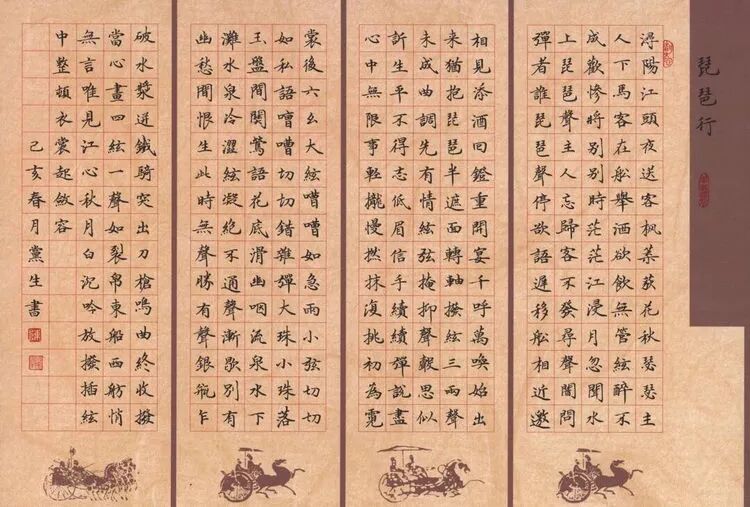 琵琶行
潯陽江頭夜送客楓葉荻花秋瑟瑟主
人下馬客在船舉酒欲飲無管絃醉不
成歡慘將別別時茫茫江浸月忽聞水
上琵琶聲主人忘歸客不發尋聲闇問
彈者誰琵琶聲停欲語遲移船相近邀
相見添酒回鐙重開宴千呼萬喚始出
来猶抱琵琶半遮面轉軸撥絃三兩聲
未成曲調先有情絃弦掩抑聲聲思似
訢生平不得志低眉信手續續彈說盡
心中無限事輕攏慢撚抹復挑初為霓
裳後六幺大絃嘈嘈如急雨小弦切切
如私語嘈嘈切切錯雜彈大珠小珠落
玉盤間關鶯語花底滑幽咽流泉水下
灘水泉冷澀絃凝絕不通聲漸歇別有
幽愁闇恨生此時無聲勝有聲銀瓶乍
破水漿迸鐵騎突出刀槍鳴曲終收撥
當心畫四絃一聲如裂帛東船西舫悄
無言唯見江心秋月白沉吟放撥插絃
中整頓衣裳起斂容
己亥春月黨生書